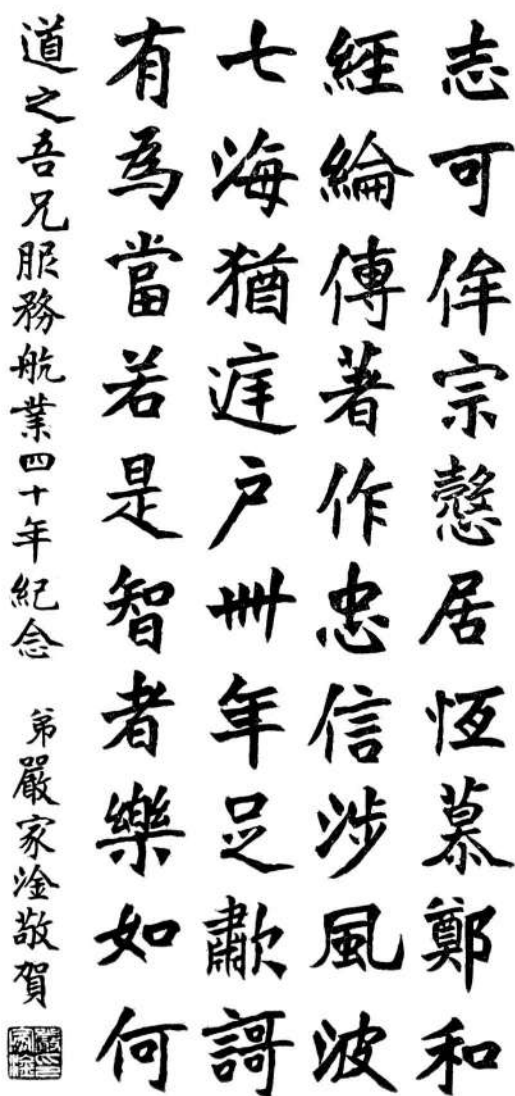 志可侔宗愨居恆慕鄭和
經綸傳著作忠信涉風波
七海猶庭戶卌年足歗謌
有為當若是智者樂如何
道之吾兄服務航業四十年紀念 弟嚴家淦敬賀
嚴印家淦